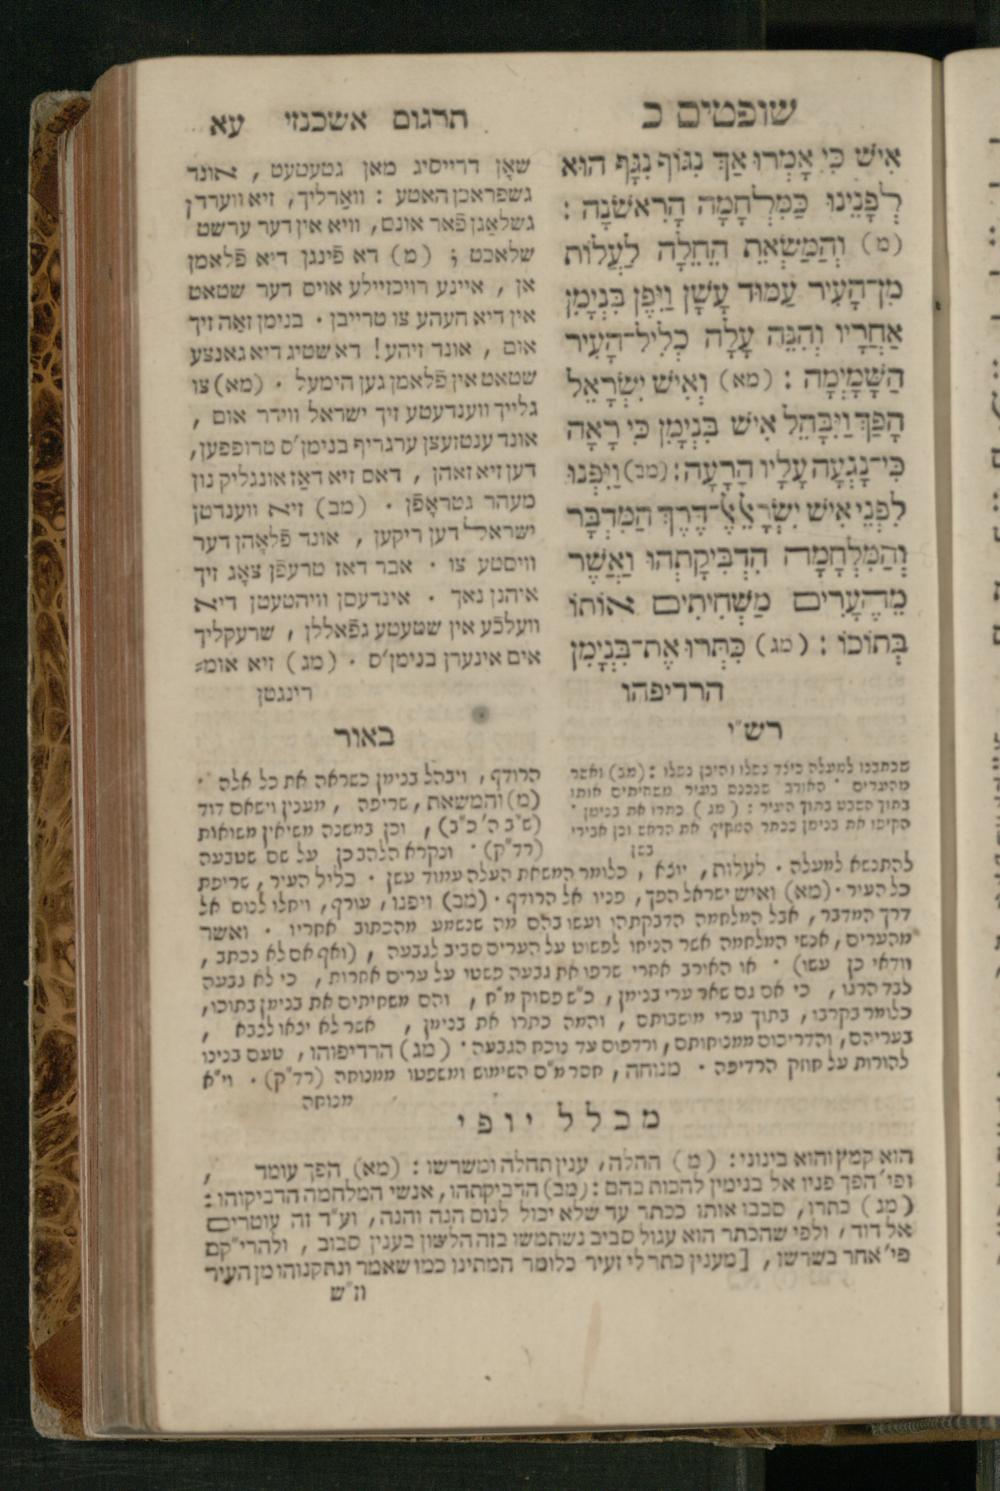 שופטים כ
תרגום אשכנזי עא
אִישׁ כִּי אָמְרוּ אַךְ נִגּוֹף נִגָּף הוּא
לְפָנֵינוּ כַּמִּלְחָמָה הָרִאשֹׁנָה :
(מ) וְהַמַּשְׂאֵת הֵחֵלָּה לַעֲלוֹת
מִן־הָעִיר עַמּוּד עָשָׁן וַיִּפֶן בִּנְיָמִן
אַחֲרָיו וְהִנֵּה עָלָה כְלִיל־הָעִיר
הַשָּׁמָיְמָה : (מא) וְאִישׁ יִשְׂרָאֵל
הָפַךְ וַיִּבָּהֵל אִישׁ בִּנְיָמִן כִּי רָאָה
כִּי־נָגְעָה עָלָיו הָרָעָה : (מב) וַיִּפְנוּ
לִפְנֵי אִישׁ יִשְׂרָאֵל אֶל־דֶּרֶךְ הַמִּדְבָּר
וְהַמִּלְחָמָה הִדְבִּיקָתְהוּ וַאֲשֶׁר
מֵהֶעָרִים מַשְׁחִיתִים אוֹתוֹ
בְּתוֹכוֹ : (מג) כִּתְּרוּ אֶת־בִּנְיָמִן
הרדיפהו
שאָן דרייסיג מאן געטעטעט , אונד
געשפראכן האטע : וואַרליך , זיא ווערדן
געשלאַגן פאר אונס , וויא אין דער ערשט
שלאכט ; (מ) דא פֿינגן דיא פֿלאמן
אן , איינע רויכזיילע אויס דער שטאט
אין דיא העהע צו טרייבן . בנימן זאה זיך
אום , אונד זיהע ! דא שטיג דיא גאנצע
שטאט אין פֿלאמן גען הימעל . (מא) צו
גלייך ווענדעטע זיך ישראל ווידר אום ,
אונד ענטזעצן ערגריף בנימן'ס טרופפען ,
דען זיא זאהן , דאס זיא דאז אונגליק נון
מעהר געטראָפֿן . (מב) זיא ווענדטן
ישראל דען ריקען , אונד פֿלאָהן דער
וויסטע צו . אבר דאז טרעפֿן צאָג זיך
איהנן נאך . אינדעסן וויהטעטן דיא
וועלכֿע אין שטעטע געפֿאללן , שרעקליך
אים אינערן בנימן'ס . (מג) זיא אומ=
רינגטן
רש"י
שכתבנו למעלה כיצד נפלו והיכן נפלו : (מב) ואשר
מהערים . האורב שנכנס בעיר משחיתים אותו
בתוך השבט בתוך העיר : (מג) כתרו את בנימן .
הקיפו את בנימן ככתר המקיף את הראש וכן אבירי
בשן
באור
הרודף , ויבהל בנימן כשראה את כל אלה .
(מ) והמשאת , שריפה , מענין וישאם דוד
(ש"ב ה' כ"ב) , וכן במשנה משיאין משואות
(רד"ק) . ונקרא הלהב כן על שם שטבעה
להתנשא למעלה . לעלות , יוצא , כלומר המשאת העלה עמוד עשן . כליל העיר , שריפת
כל העיר . (מא) ואיש ישראל הפך , פניו אל הרודף . (מב) ויפנו , עורף , ויחלו לנוס אל
דרך המדבר , אבל המלחמה הדבקתהו ועשו בהם מה שנשמע מהכתוב אחריו . ואשר
מהערים , אנשי המלחמה אשר הניחו לפשוט על הערים סביב לגבעה , (ואף אם לא נכתב ,
וודאי כן עשו) . או האורב אחרי שרפו את גבעה פשטו על ערים אחרות , כי לא גבעה
לבד הרגו , כי אם גם שאר ערי בנימן , כ"ש פסוק מ"ח , והם משחיתים את בנימן בתוכו ,
כלומר בקרבו , בתוך ערי מושבותם , והמה כתרו את בנימן , אשר לא יצאו לצבא ,
בעריהם , והדריכום ממנוחתם , ורדפום עד נוכח הגבעה . (מג) הרדיפוהו , טעם בנינו
להורות על חוזק הרדיפה . מנוחה , חסר מ"ם השימוש ומשפטו ממנוחה (רד"ק) . וי"א
מנוחה
מכלל יופי
הוא קמץ והוא בינוני : (מ) החלה , ענין תחלה ומשרשו : (מא) הפך עומד ,
ופי' הפך פניו אל בנימין להכות בהם : (מב) הדביקתהו , אנשי המלחמה הדביקוהו :
(מג) כתרו , סבבו אותו ככתר עד שלא יכול לנוס הנה והנה , וע"ד זה עוטרים
אל דוד , ולפי שהכתר הוא עגול סביב נשתמשו בזה הלשון בענין סבוב , ולהרי"קם
פי' אחר בשרשו , [מענין כתר לי זעיר כלומר המתינו כמו שאמר ונתקנוהו מן העיר
וז"ש